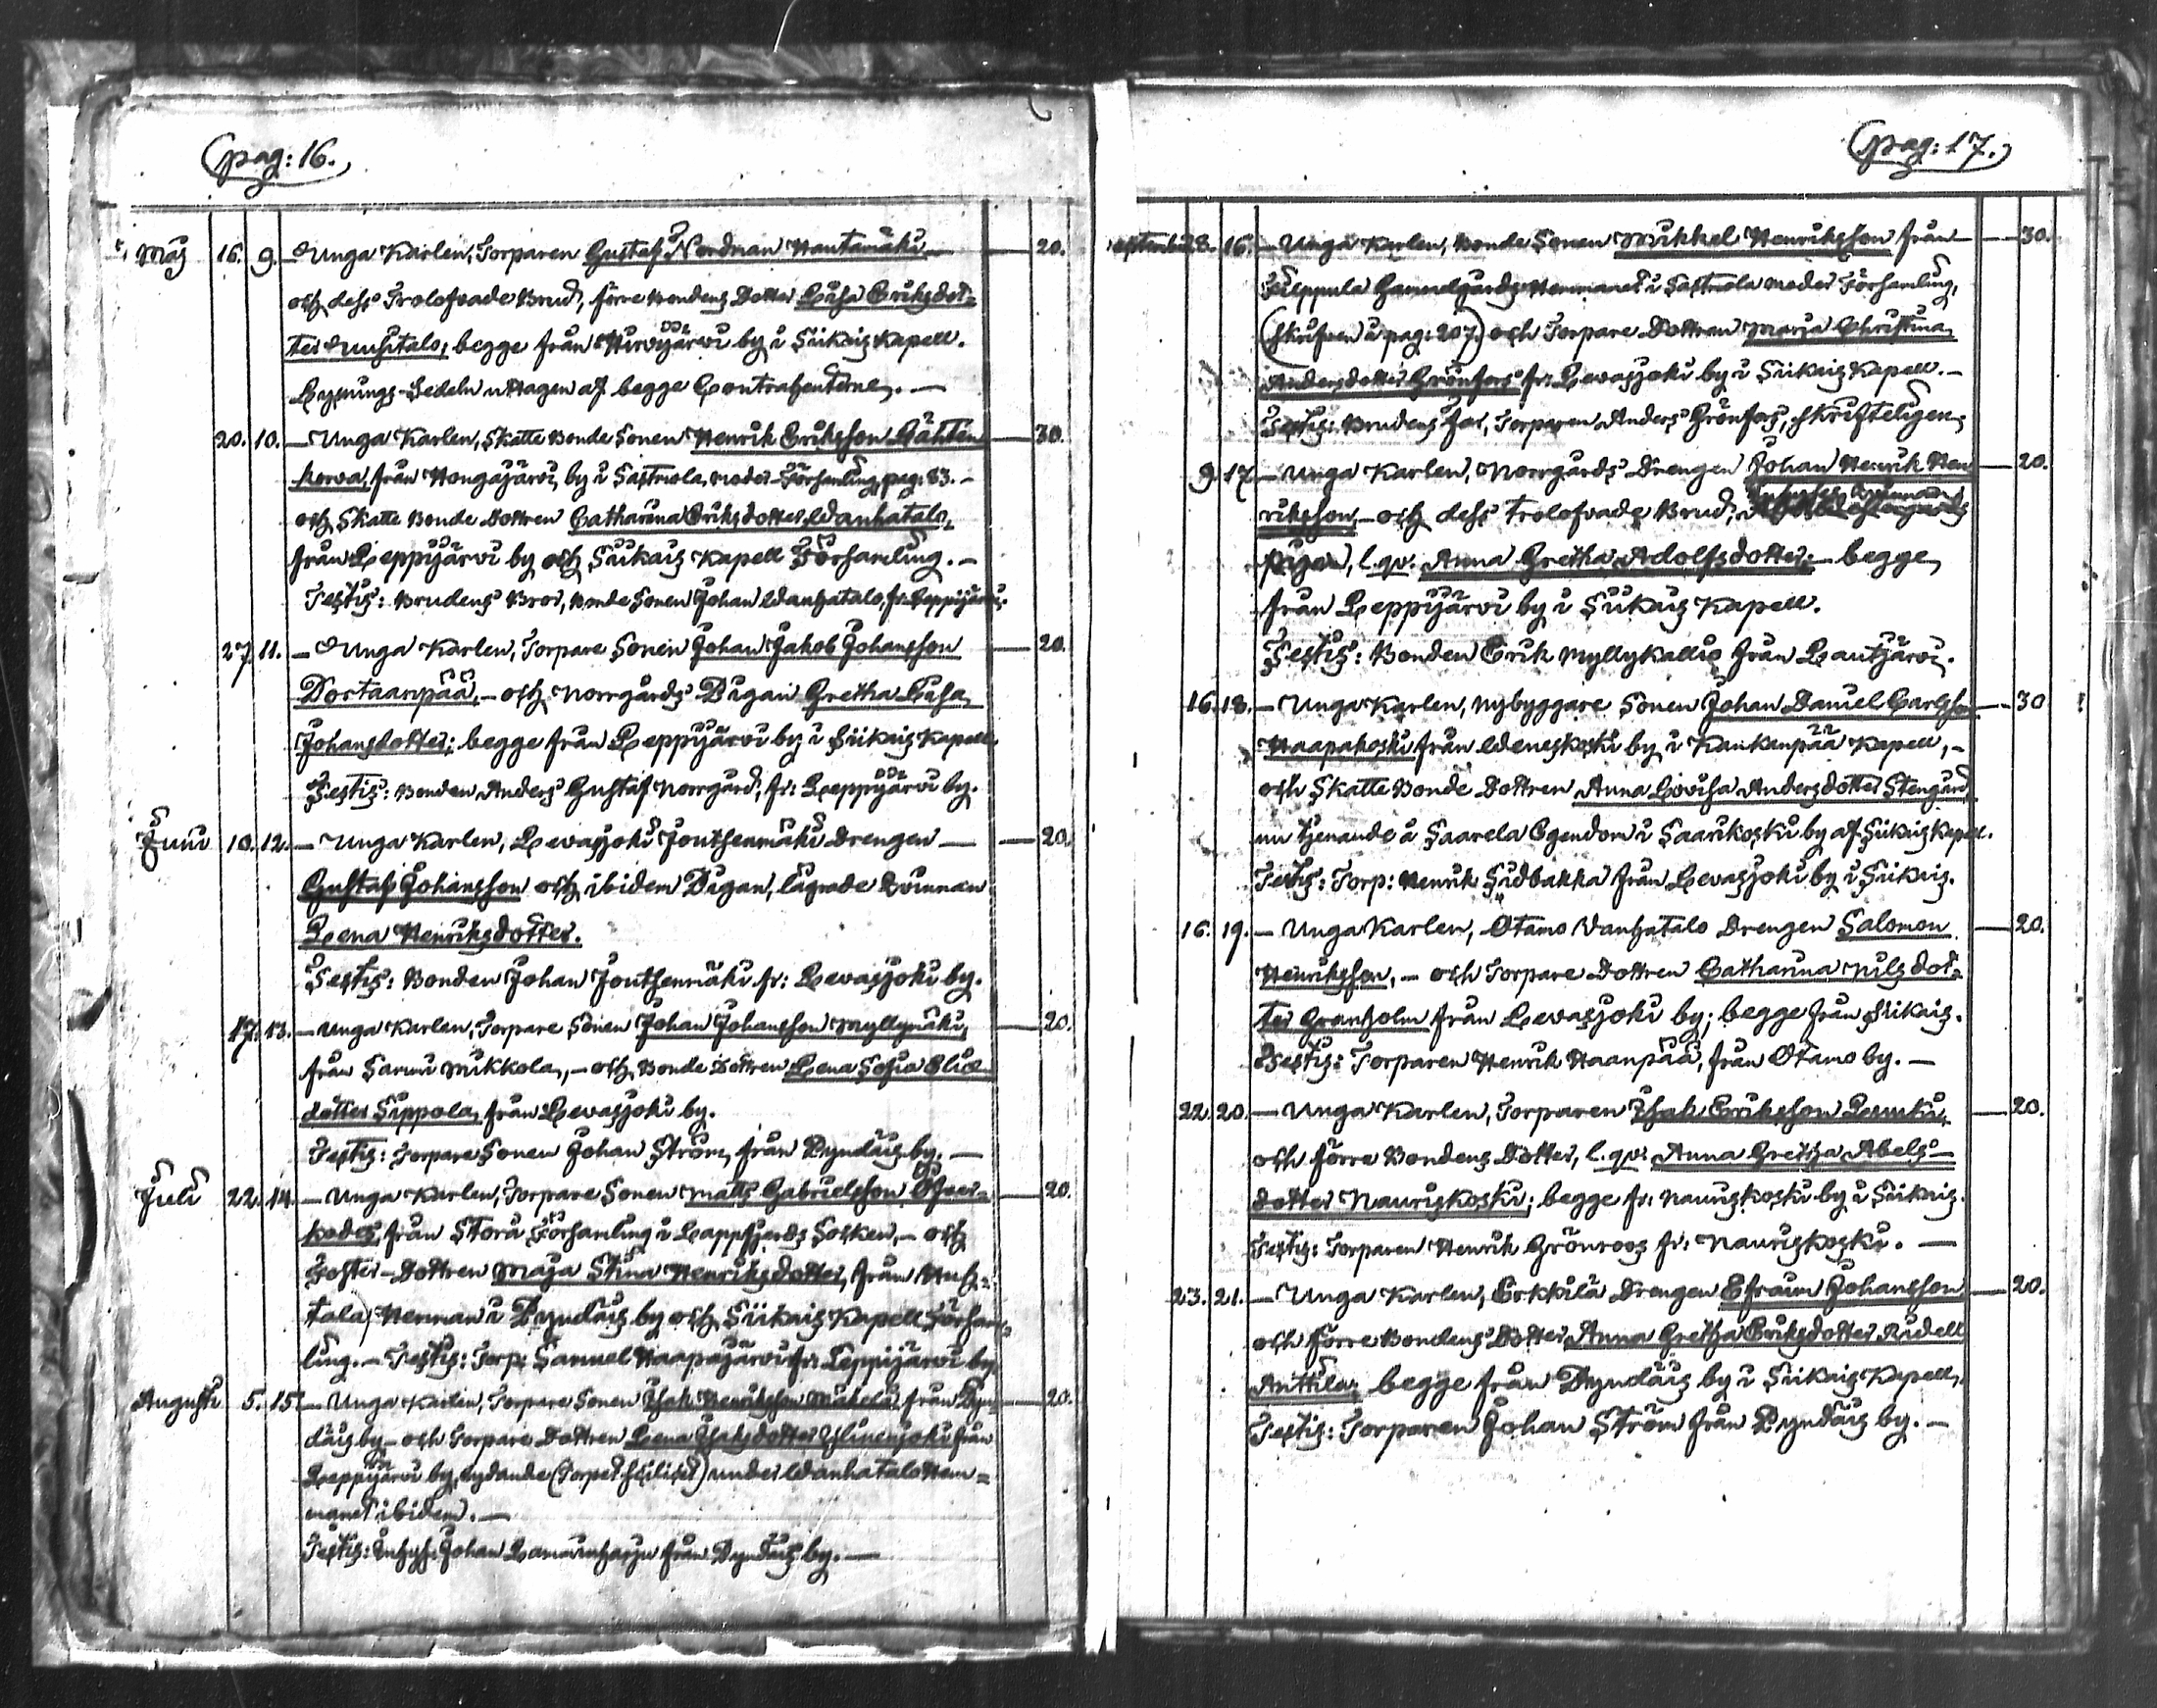 (pag: 16.)
Maj 16. 9. — Unga Karlen, Torparen Gustaf Nordman Hautamäki — 20.
och dess Trolofvade Brud, förre Bondens Dotter Lisa Eriksdot-
ter Uusitalo, begge från Hirvijärvi by i Siikais Kapell.
Lysnings-Sedeln uttagen af begge Contrahenterne. —
20. 10. — Unga Karlen, Skatte Bonde Sonen Henrik Eriksson Lähten — 30.
korva, från Hongajärvi, by i Sastmola moder Församling, pag: 83. —
och Skatte Bonde Dottren Catharina Eriksdotter Wanhatalo,
från Leppijärvi by och Siikais Kapell Församling. —
Testis: Brudens Bror, Bonde Sonen Johan Wanhatalo, fr. Leppijärvi.
27. 11. — Unga Karlen, Torpare Sonen Johan Jakob Johansson — 20.
och Norrgårds Pigan Gretha Lisa
Johansdotter; begge från Leppijärvi by i Siikais Kapell.
Testis: Bonden Anders Gustaf Norrgård, fr: Leppijärvi by.
Juni 10. 12. — Unga Karlen, Levasjoki Joutsenmäki Drengen — 20.
Gustaf Johansson och ibidem Pigan, lägrade Qvinnan
Lena Henriksdotter.
Testis: Bonden Johan Joutsenmäki fr: Levasjoki by.
17. 13. — Unga Karlen, Torpare Sonen Johan Johansson Myllymäki, — 20.
från Sammi Mikkola, — och Bonde Dottren Lena Sofia Elis
dotter Sippola, från Levasjoki by.
Testis: Torpare Sonen Johan Ström, från Pyndäis by. —
Juli 22. 14. — Unga Karlen, Torpare Sonen Matts Gabrielsson — 20.
från Storå Församling i Lappfjerds Socken, — och
Foster-Dottren Maja Stina Henriksdotter, från Uusi-
talo Hemman i Pyndäis by och Siikais Kapell Församl
ling. — Testis: Torp: Samuel Haapajärvi fr: Leppijärvi by
Augusti 5. 15. — Unga Karlen, Torpare Sonen Isak Henriksson Mäkelä, från Pyn — 20.
däis by — och Torpare Dottren Lena Isaksdotter Ylinenjoki från
Leppijärvi by, lydande (Torpet scilicet) under Wanhatalo Hem-
mant ibidem. —
Testis: Inhys: Johan från Pyndäis by. —
(pag: 17.)
September 8. 16. — Unga Karlen, Bonde Sonen Mikkel Henriksson från — 30.
Filppula Gammelgårds Hemmanet i Sastmola moder Församling,
(skrifven å pag: 207.) och Torpare Dottren Maria Christina
Andersdotter Grönfors fr: Levasjoki by i Siikais Kapell. —
Testis: Brudens Far, Torparen Anders Grönfors, skrifteligen.
9. 17. — Unga Karlen, Norrgårds Drengen Johan Henrik Hen — 20.
riksson, — och dess Trolofvade Brud,
Pigan, l. qv. Anna Gretha Adolfsdotter; — begge
från Leppijärvi by i Siikais Kapell.
Testis: Bonden Erik Myllykallio från Lautjärvi.
16. 18. — Unga Karlen, Nybyggare Sonen Johan Daniel Carlsson — 30
Haapakoski från Weneskoski by i Kankanpää Kapell, —
och Skatte Bonde Dottren Anna Lovisa Andersdotter Stengård,
nu tjenande å Saarela Egendom i Saarikoski by af Siikais Kapell.
Testis: Torp: Henrik Sidbakka från Levasjoki by i Siikais.
16. 19. — Unga Karlen, Otamo Vanhatalo Drengen Salomon — 20.
Henriksson, — och Torpare Dottren Catharina Nilsdot-
ter Granholm från Levasjoki by; begge från Siikais.
Testis: Torparen Henrik Haanpää, från Otamo by. —
22. 20. — Unga Karlen, Torparen Isak Eriksson — 20.
och förre Bondens Dotter, l. qv: Anna Gretha Abels-
dotter Nauriskoski; begge fr: Nauriskoski by i Siikais.
Testis: Torparen Henrik Grönroos fr: Nauriskoski. —
23. 21. — Unga Karlen, Erkkilä Drengen Efraim Johansson — 20.
och förre Bondens Dotter Anna Gretha Eriksdotter Ridell
Anttila; begge från Pyndäis by i Siikais Kapell.
Testis: Torparen Johan Ström från Pyndäis by. —